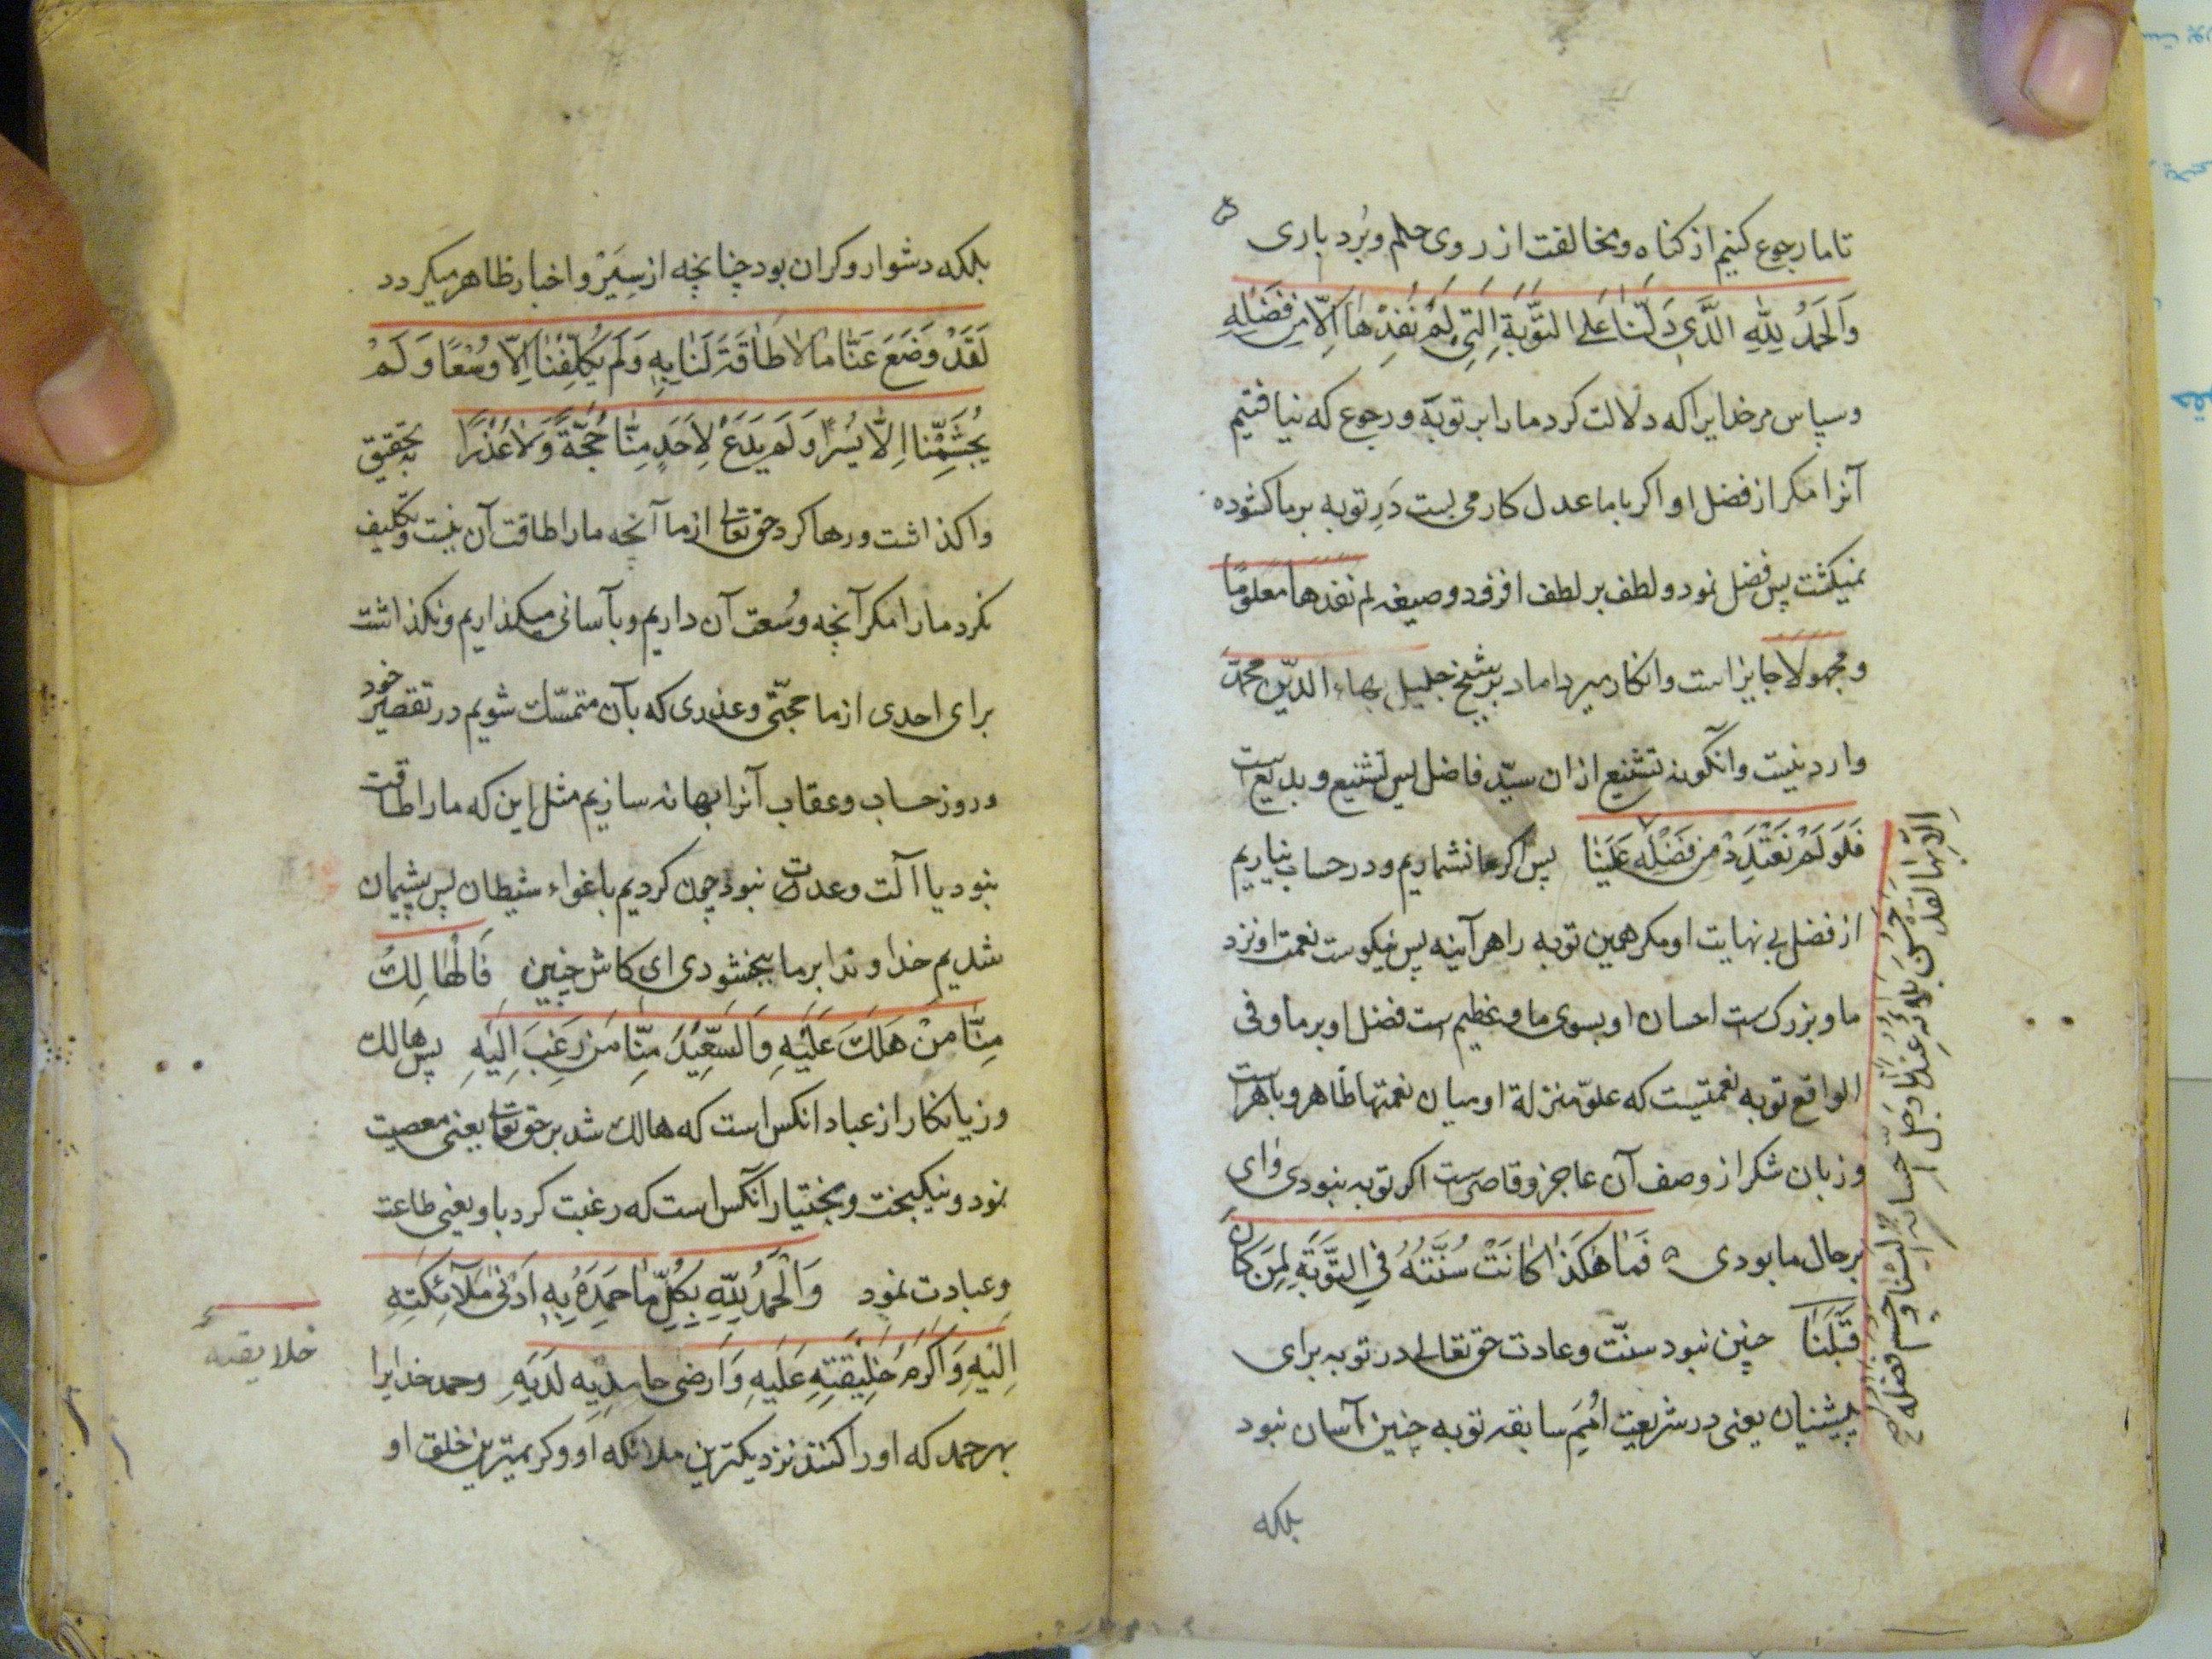 تا ما رجوع کنیم از کناه و مخالفت از روی حلم و بُرد باری
وَالحَمدُ لِلّهِ الَّذَی دَلَّنَا عَلَی التَّوبَةِ الَّتِی لَمْ نُفِدْهَا اِلّا مِن فَضْلِهِ
و سپاس مر خدایرا که دلالت کرد ما را بر توبَه و رجوع که نیافتیم
آنرا مکر از فضل او اکر با ما عدل کار می بست دَرِ توبه بر ما کشوده
نمیکشت پس فضل نمود و لطف بر لطف افزود و صیغه لم نفدها معلومًا
و مجهولا جایز است و انکار میرداماد بر شیخ جلیل بهاء الدّین محمّد
وارد نیست و آنگونه تشنیع از ان سیّد فاضل بس شنیع و بدیع است
فَلَو لَمْ نَعْتَدِدْ مِن فَضْلِهِ عَلَینَا پس اکر ما نشماریم و در حساب نیاریم
از فضل بی نهایت او مکر همین توبه را هر آینه پس نیکوست نعمت او نزد
ما و بزرک ست احسان او بسوی ما و عظیم ست فضل او بر ما و فی
الواقع توبه نعمتیست که علوّ منزلة او میان نعمتها ظاهر و باهر است
و زبان شکر از وصف آن عاجز و قاصر ست اکر توبه نبودی وای
بر حال ما بودی فَمَا هٰکَذَا کَانَتْ سُنَّتُهُ فِی التَّوبَةِ لِمَن کَانَ
قَبْلَنَا چنین نبود سنّت و عادت حق تعالی در توبه برای
پیشینیان یعنی در شریعت اُمَمِ سابقه توبه چنین آسان نبود
بلکه
اِلّا بِهَا لَقَدْ حَسُنَ بَلاؤُهُ عِندَنَا وَ جَلَّ اِحسَانُهُ اِلَینَا وَ جَسُمَ فَضْلُهُ صح
بلکه دشوار و کران بود چنانچه از سِیَرْ و اخبار ظاهر میکردد
لَقَدْ وَضَعَ عَنَّا مَا لَا طَاقَةَ لَنَا بِهِ وَ لَم یُکَلِّفْنَا اِلّا وُسْعًا وَ لَمْ
یُجَشِّمْنَا اِلَّا یُسْرًا وَ لَم یَدَعْ لِاَحَدٍ مِنَّا حُجَّةً وَ لَا عُذْرًا بتحقیق
واکذاشت و رها کرد حق تعالی از ما آنچه ما را طاقت آن نیست و تکلیف
نکرد ما را مکر آنچه وُسعت آن داریم و بآسانی میکذاریم و نکذاشت
برای احدی از ما حجّتی و عذری که بآن متمسّک شویم در تقصیر خود
و روز حساب و عقاب آنرا بهانه سازیم مثل این که ما را طاقت
نبود یا آلت وعدت نبود چون کردیم باغواء شیطان پس پشیمان
شدیم خداوندا بر ما ببخشودی ای کاش چنین فَالْهَالِکُ
مِنَّا مَنْ هَلَکَ عَلَیهِ وَالسَّعِیدُ مِنَّا مَن رَغِبَ اِلَیهِ پس هالک
و زیانکار از عباد انکس است که هالک شد بر حق تعالی یعنی معصیت
نمود و نیکبخت و بختیار آنکس است که رغبت کرد باو یعنی طاعت
و عبادت نمود وَالْحَمْدُ لِلّهِ بِکُلِّ مَا حَمِدَهُ بِهِ اَدْنَی مَلَآئِکَتِهِ
اِلَیْهِ وَ اَکْرَمُ خَلِیقَتِهِ عَلَیهِ وَ اَرضَی حَامِدِیهِ لَدَیهِ و حمد خدایرا
خلایقه
بهر حمد که او را کنند نزدیکترین ملائکه او و کریمترین خلق او